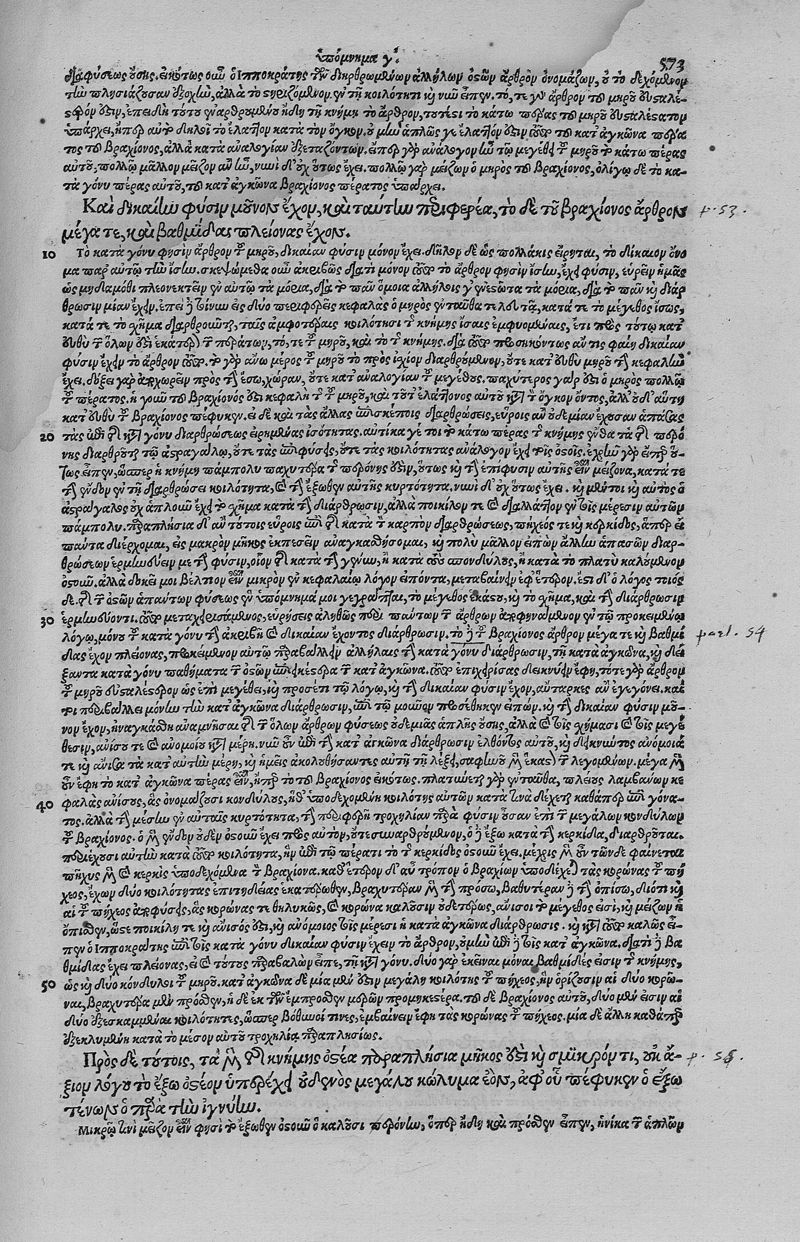 ὑπόμνημα γ΄. 573
διαφύσεως οὔσης. εἰκότως οὖν ὁ Ἱπποκράτης τῶν διηρθρωμένων ἀλλήλων ὀστῶν ἄρθρον ὀνομάζων, οὐ τὸ δεχόμενον
τὴν πλησιάζουσαν ἐξοχὴν, ἀλλὰ τὸ στηριζόμενον ἐν τῇ κοιλότητι καὶ νῦν εἶπεν. τὸ, τε γὸν ἄρθρον τοῦ μηροῦ εὐσταλέ-
στερόν ἐστιν, ἐπειδὴ τοῦτο ἐναρθρούμενον ἤδη τῇ κνήμῃ τὸ ἄρθρον, τουτέστι τὸ κάτω πέρας τοῦ μηροῦ εὐσταλέστατον
ὑπάρχει, ἥπερ αὐτὸ δηλοῖ τὸ ἔλαττον κατὰ τὸν ὄγκον. οὐ μὴν ἁπλῶς γε ἔλαττόν ἐστιν, τοῦ κατ' ἀγκῶνα πέρα
τος τοῦ βραχίονος, ἀλλὰ κατὰ ἀναλογίαν ἐξεταζόντων. εἴπερ γὰρ ἀνάλογον ἦν τῷ μεγέθει τοῦ μηροῦ τὸ κάτω πέρας
αὐτοῦ, πολλῷ μᾶλλον μεῖζον ἂν ἦν, νυνὶ δ' οὐχ οὕτως ἔχει. πολλῷ γὰρ μείζων ὁ μηρὸς τοῦ βραχίονος, ὀλίγῳ δὲ τὸ κα-
τὰ γόνυ πέρας αὐτοῦ, τοῦ κατ' ἀγκῶνα βραχίονος πέρατος ὑπάρχει.
Καὶ δικαίαν φύσιν μοῦνον ἔχον, καὶ ταύτην περιφερέα, τὸ δὲ τοῦ βραχίονος ἄρθρον p. 53.
μέγα τε, καὶ βαθμίδας πλείονας ἔχον.
10 Τὸ κατὰ γόνυ φησὶν ἄρθρον τοῦ μηροῦ, δικαίαν φύσιν μόνον ἔχει. δῆλον δὲ ὡς πολλάκις εἴρηται, τὸ δίκαιον ὄνο
μα παρ' αὐτῷ τὴν ἴσην. σκεψώμεθα οὖν ἀκριβῶς διὰ τί μόνον τὸ ἄρθρον φησὶν ἴσην, ἔχειν φύσιν, εὑρεῖν ἡμᾶς
ὡς μηδαμόθι πλεονεκτεῖν ἐν αὐτῷ τὰ μόρια, διὰ τὸ πᾶν ὅμοια ἀλλήλοις γενέσθαι τὰ μόρια, διὰ τὸ πᾶν καὶ διάρ
θρωσιν μίαν ἔχειν, ἐπεὶ γοῦν εἰς δύο περιφερεῖς κεφαλὰς ὁ μηρὸς ἐνταῦθα τελευτᾷ, κατά τε τὸ μέγεθος ἴσας,
κατά τε τὸ σχῆμα διαρθροῦται, ταῖς ἀμφοτέραις κοιλότησι τῆς κνήμης ἴσαις ἐμφυομέναις, ἔτι πρὸς τούτῳ κατ'
εὐθὺ τῶν ὅλων ἐστὶν ἑκατέρων τῶν περάτων, τό, τε τοῦ μηροῦ, καὶ τὸ τῆς κνήμης. διὰ προσηκόντως ἄν τις φαίη δικαίαν
φύσιν ἔχειν τὸ ἄρθρον. τὸ γὰρ ἄνω μέρος τοῦ μηροῦ τὸ πρὸς ἰσχίον διαρθρούμενον, οὔτε κατ' εὐθὺ μηροῦ τὴν κεφαλὴν
ἔχει. δόξει γὰρ ἀποχωρεῖν πρὸς τὴν ἔσω χώραν, οὔτε κατ' ἀναλογίαν τοῦ μεγέθους. παχύτερος γάρ ἐστι ὁ μηρὸς πολλῷ
τοῦ πέρατος. ἡ γοῦν τοῦ βραχίονός ἐστι κεφαλὴ τῆς τοῦ μηροῦ, καὶ τοι γε ἐλάττονος αὐτοῦ κατὰ τὸν ὄγκον ὄντος, ἀλλ' οὐδ' αὐτὴ
κατ' εὐθὺ τοῦ βραχίονος πέφυκεν. εἰ δὲ καὶ τὰς ἄλλας ἐπισκέποις διαρθρώσεις, εὕροις ἂν οὐδεμίαν ἔχουσαν ἁπάσας
20 τὰς ἐπὶ τῆς κατὰ γόνυ διαρθρώσεως εἰρημένας ἰσότητας. αὐτίκα γέ τοι τὸ κάτω πέρας τῆς κνήμης ἔνθα τὰ τῆς περό
νης διαρθροῦται τῷ ἀστραγάλῳ, οὔτε τὰς ἐπιφύσεις, οὔτε τὰς κοιλότητας ἀνάλογον ἔχει τοῖς ὀστοῖς. ἐχρῆν γὰρ εἴπερ οὕ-
τως εἶπεν, ὥσπερ ἡ κνήμη πάμπολυ παχυτέρα τῆς περόνης ἐστὶν, οὕτως καὶ τὴν ἐπίφυσιν αὐτῆς εἶναι μείζονα, κατά τε
τὴν ἔνδον ἐν τῇ διαρθρώσει κοιλότητα, καὶ τὴν ἔξωθεν αὐτῆς κυρτότητα. νυνὶ δ' οὐχ οὕτως ἔχει. καὶ μέντοι καὶ αὐτὸς ὁ
ἀστράγαλος οὐχ ἁπλοῦν ἔχει τὸ σχῆμα κατὰ τὴν διάρθρωσιν, ἀλλὰ ποικίλον τε καὶ διαλλάττον ἐν τοῖς μέρεσιν αὐτῶν
πάμπολυ. παραπλήσια δ' ἂν τούτοις εὕροις ἐπὶ τῆς κατὰ τὸν καρπὸν διαρθρώσεως, πήχεός τε καὶ κερκίδος, ἅπερ εἰ
πάντα διέρχομαι, εἰς μακρὸν μῆκος ἐκπεσεῖν ἀναγκασθήσομαι, καὶ πολὺ μᾶλλον ἐπιὼν ἄλλην ἁπασῶν διαρ-
θρώσεων ἑρμηνεύων μετὰ τὴν φύσιν, οἷον τῆς κατὰ τὴν γένυν, ἢ κατὰ τοὺς σπονδύλους, ἢ κατὰ τὸ πλατὺ καλούμενον
ὀστοῦν, ἀλλὰ δοκεῖ μοι βέλτιον εἶναι μικρὸν ἐν κεφαλαίῳ λόγον εἰπόντα, μεταβαίνειν ἐφ' ἕτερον. ἔστι δ' ὁ λόγος τοιός
δε. τῆς τῶν ὀστῶν ἁπάντων φύσεως ἐν ὑπόμνημά μοι γέγραπται, τὸ μέγεθος ἑκάστου, καὶ τὸ σχῆμα, καὶ τὴν διάρθρωσιν
30 ἑρμηνεύοντι. μεταχειρισάμενος, εὑρήσεις ἀληθῶς περὶ πάντων τῶν ἄρθρων ἀποφηνάμενον ἐν τῷ προκειμένῳ
λόγῳ, μόνου τοῦ κατὰ γόνυ τὴν ἀκριβῆ καὶ δικαίαν ἔχοντος διάρθρωσιν. τὸ γοῦν τοῦ βραχίονος ἄρθρον μέγα τε καὶ βαθμί part. 54
δας ἔχον πλείονας, προκείμενον αὐτῷ παραβάλλειν ἀλλήλαις τὴν κατὰ γόνυ διάρθρωσιν, τῇ κατ' ἀγκῶνα, καὶ δεῖ
ξαντα κατὰ γόνυ παθήματα τῶν ὀστῶν ἐπιεικέστερα τῶν κατ' ἀγκῶνα. ἐπιχειρήσας δεικνύειν ἔφη, τότε γὰρ ἄρθρον
τοῦ μηροῦ εὐσταλέστερον ὡς ἐπὶ μεγέθει, καὶ προσέτι τῷ λόγῳ, καὶ τὴν δικαίαν φύσιν ἔχον, αὔταρκες ἂν ἐγεγόνει. καί
τοι περιβάλλει μόνην τὴν κατ' ἀγκῶνα διάρθρωσιν, ἐπὶ τῷ μοῦνον προσέθηκεν εἰπών. καὶ δικαίαν φύσιν μό-
νον ἔχον, ἠναγκάσθη ἀναμνῆσαι τῆς τῶν ὅλων ἄρθρων φύσεως οὐδεμιᾶς ἁπλῆς οὔσης, ἀλλὰ καὶ τοῖς σχήμασι καὶ τοῖς μεγέ
θεσιν, ἀνίσου τε καὶ ἀνομοίου κατὰ μέρη. νῦν οὖν ἐπὶ τὴν κατ' ἀγκῶνα διάρθρωσιν ἐλθόντος αὐτοῦ, καὶ δεικνύντος ἀνόμοιά
τε καὶ ἄνιζα τὰ κατ' αὐτὴν μέρη, καὶ ἡμεῖς ἀκολουθήσαντες αὐτῇ τῇ λέξει, σαφηνιοῦμεν ἕκαστον τῶν λεγομένων. μέγα μὲν
οὖν ἔφη τὸ κατ' ἀγκῶνα πέρας εἶναι, ἤπερ τὸ τοῦ βραχίονος εἰκότως. πλατύνεται γὰρ ἐνταῦθα, πλείους λαμβάνων κε
40 φαλὰς ἀνίσους, ἃς ὀνομάζουσι κονδύλους, ἡ δὲ ὑποδεχομένη κοιλότης αὐτῶν κατὰ τινὰ δέχεται καθάπερ ἐπὶ γόνα-
τος. ἀλλὰ τὴν μέσην ἐν αὐταῖς κυρτότητα, τῇ περιφερῆ τροχηλίαν παρὰ φύσιν οὖσαν ἐπὶ τῶν μεγάλων κονδύλων
τοῦ βραχίονος. ὁ μὲν ἔνδον οὐδὲν ὀστοῦν ἔχει πρὸς αὐτὸν, οὔτε συναρθρούμενον, ὁ γοῦν ἔξω κατὰ τὴν κερκίδα, διαρθροῦται.
περιέχουσι αὐτὴν κατὰ κοιλότητα, ἣν ἐπὶ τῷ πέρατι τὸ τῆς κερκίδος ὀστοῦν ἔχει. μέχρις μὲν οὖν τῶνδε φαίνεται
πῆχυς μὲν καὶ κερκὶς ὑποδεχόμενα τὸν βραχίονα. καθ' ἕτερον δ' αὖ τρόπον ὁ βραχίων ὑποδέχεται τὰς κορώνας τοῦ πή
χεος, ἔχων δύο κοιλότητας ἐπιτηδείας ἑκατέρωθεν, βραχυτέραν μὲν τὴν πρόσω, βαθυτέραν δὲ τὴν ὀπίσω, διότι καὶ
αἱ τοῦ πήχεος ἀποφύσεις, ἃς κορώνας τε θηλυκῶς, καὶ κορωνὰ καλοῦσιν οὐδετέρως, ἄνισοι τὸ μέγεθος εἰσὶ, καὶ μείζων ἡ
ὄπισθεν, ὥστε ποικίλη τε καὶ ἄνισός ἐστι, καὶ ἀνόμοιος τοῖς μέρεσι ἡ κατ' ἀγκῶνα διάρθρωσις. καὶ κατὰ καλῶς εἶ-
πεν ὁ Ἱπποκράτης ἐπὶ τοῖς κατὰ γόνυ δικαίαν φύσιν ἔχειν τὸ ἄρθρον, οὐ μὴν ἐπὶ γοῦν τοῖς κατ' ἀγκῶνα. διὰ τί γοῦν βα
θμίδας ἔχει πλείονας, εἰ καὶ τούτους παραβαλὼν εἶπε, τῇ κατὰ γόνυ. δύο γὰρ ἐκεῖναι μόναι βαθμίδες εἰσιν τῆς κνήμης,
50 ὡς καὶ δύο κόνδυλοι τοῦ μηροῦ. κατ' ἀγκῶνα δὲ μία μέν ἐστιν μεγάλη κοιλότης τοῦ πήχεος, ἣν ὁρίζουσιν αἱ δύο κορῶ-
ναι, βραχυτέρα μὲν πρόσθεν, ἡ δὲ ἐκ τῶν ἔμπροσθεν μερῶν προμηκεστέρα. τοῦ δὲ βραχίονος αὐτοῦ, δύο μὲν εἰσιν αἱ
δύο ἐξεσκαμμέναι κοιλότητες, ὥσπερ βόθυνοί τινες, ἐμβαίνειν ἔφη τὰς κορώνας τοῦ πήχεος. μία δὲ ἄλλη καθάπερ
ἐξεκλυμένη κατὰ τὸ μέσον αὐτοῦ τροχηλίᾳ παραπλησίως.
Πρὸς δὲ τούτοις, τὰ μὲν τῆς κνήμης ὀστέα παραπλήσια μῆκος ἐστὶ καὶ σμικρόν τι, οὐκ ἄ- p. 54.
ξιον λόγου τὸ ἔξω ὀστέον ὑπερέχει οὐδενὸς μεγάλου κώλυμα ἐὸν, ἀφ' οὗ πέφυκεν ὁ ἔξω
τένων ὁ παρὰ τὴν ἰγνύην.
Μικρῷ τινὶ μεῖζον εἶναι φησὶ τὸ ἔξωθεν ὀστοῦν ὃ καλοῦσι περόνην, ὅπερ ἤδη καὶ πρόσθεν εἶπεν, ἡνίκα τῶν ἁπλῶν